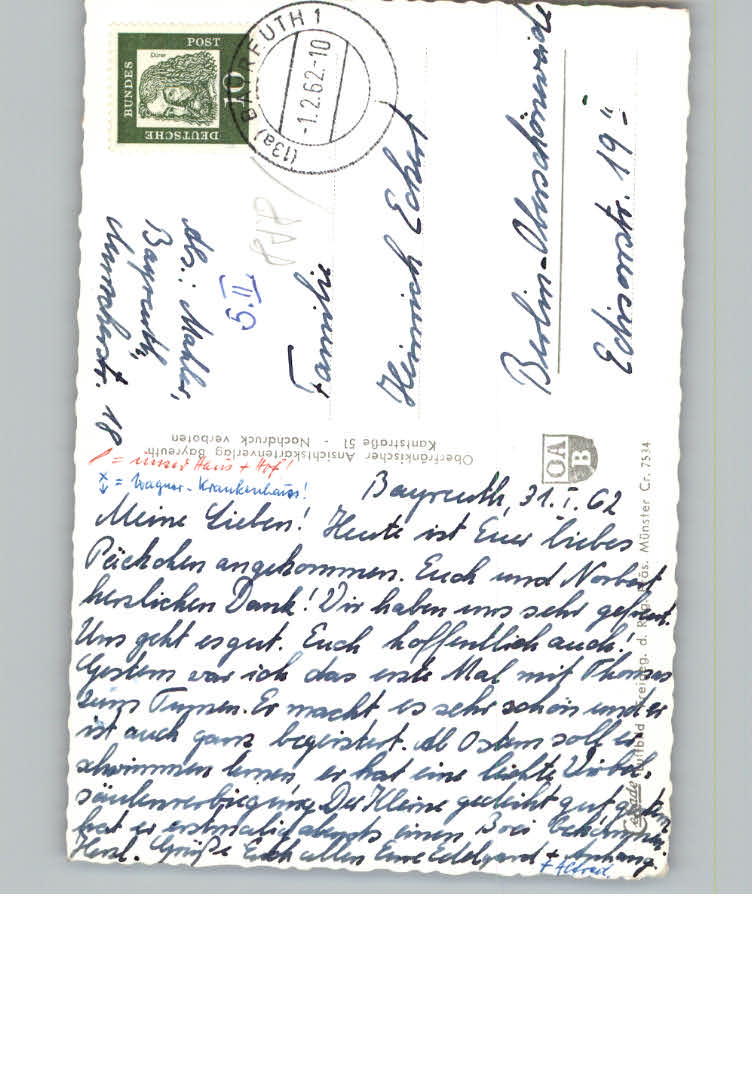 DEUTSCHE
BUNDES
POST
10
Dürer
(13a) BAYREUTH 1
-1.2.62-10
Abs.: Mahler,
Bayreuth,
18
5.II
Familie
Heinrich Eckert
Berlin-Oberschöneweide
Edisonstr. 19
Oberfränkischer Ansichtskartenverlag Bayreuth
Kantstraße 51 - Nachdruck verboten
OA
B
Luftbild Freigeg. d. Reg. Präs. Münster Cr. 7534
= unser Haus + Hof!
x = Wagner-Krankenhaus!
Bayreuth, 31.I.62
Meine Lieben! Heute ist Euer liebes
Päckchen angekommen. Euch und Norbert
herzlichen Dank! Wir haben uns sehr gefreut.
Uns geht es gut. Euch hoffentlich auch!
Gestern war ich das erste Mal mit Thomas
zum Turnen. Er macht es sehr schön und er
ist auch ganz begeistert. Ab Ostern soll er
schwimmen lernen, er hat eine leichte Wirbel-
säulenverbiegung. Der Kleine gedeiht gut, gestern
hat er erstmalig abends einen Brei bekommen.
Herzl. Grüße Euch allen Eure Edelgard + Anhang.
+ Alfred.